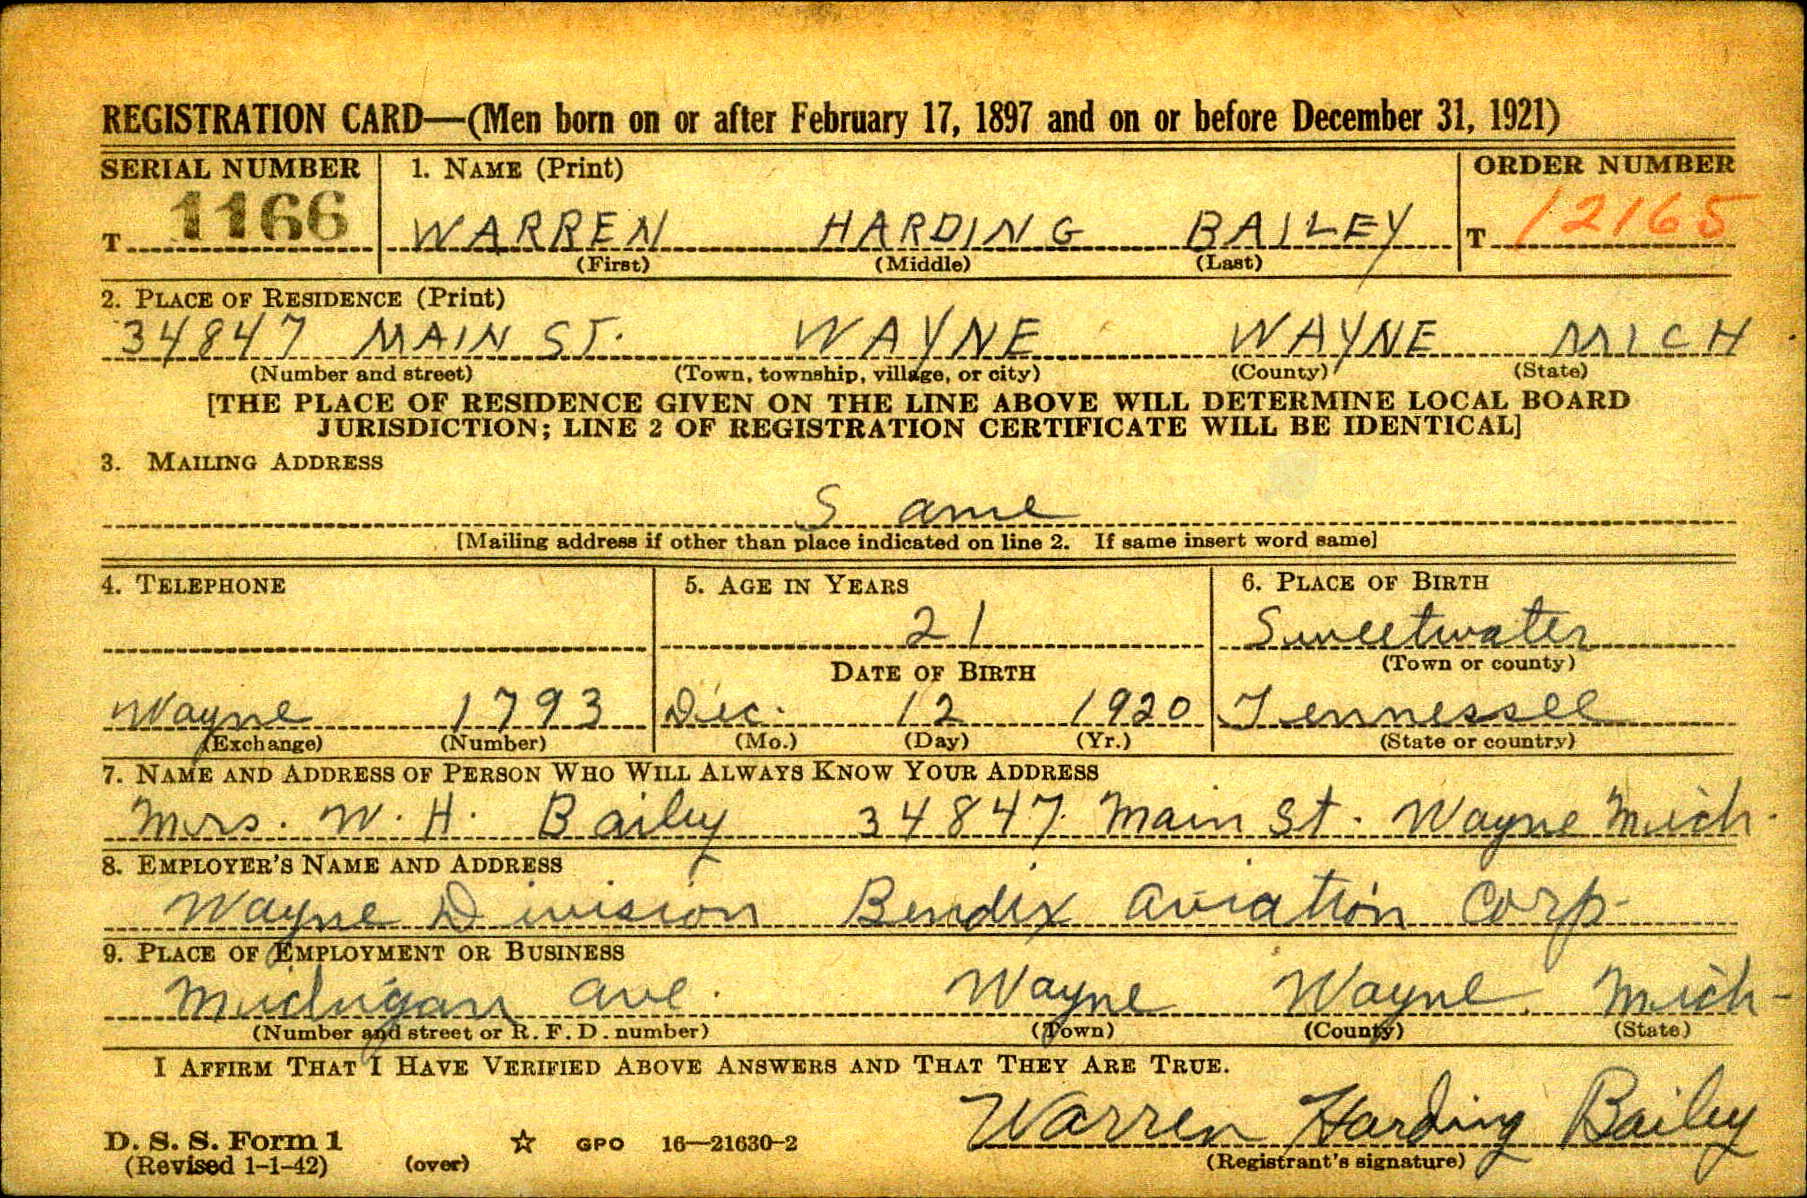 REGISTRATION CARD—(Men born on or after February 17, 1897 and on or before December 31, 1921)
SERIAL NUMBER 1. NAME (Print) ORDER NUMBER
T 1166 WARREN HARDING BAILEY T 12165
(First) (Middle) (Last)
2. PLACE OF RESIDENCE (Print)
34847 MAIN ST. WAYNE WAYNE MICH.
(Number and street) (Town, township, village, or city) (County) (State)
[THE PLACE OF RESIDENCE GIVEN ON THE LINE ABOVE WILL DETERMINE LOCAL BOARD
JURISDICTION; LINE 2 OF REGISTRATION CERTIFICATE WILL BE IDENTICAL]
3. MAILING ADDRESS
Same
[Mailing address if other than place indicated on line 2. If same insert word same]
4. TELEPHONE 5. AGE IN YEARS 6. PLACE OF BIRTH
21 Sweetwater
(Town or county)
DATE OF BIRTH
Wayne 1793 Dec. 12 1920 Tennessee
(Exchange) (Number) (Mo.) (Day) (Yr.) (State or country)
7. NAME AND ADDRESS OF PERSON WHO WILL ALWAYS KNOW YOUR ADDRESS
Mrs. W. H. Bailey 34847 Main St. Wayne Mich.
8. EMPLOYER'S NAME AND ADDRESS
Wayne Division Bendix Aviation Corp-
9. PLACE OF EMPLOYMENT OR BUSINESS
Michigan Ave. Wayne Wayne Mich-
(Number and street or R. F. D. number) (Town) (County) (State)
I AFFIRM THAT I HAVE VERIFIED ABOVE ANSWERS AND THAT THEY ARE TRUE.
Warren Harding Bailey
D. S. S. Form 1 ☆ GPO 16—21630-2
(Revised 1-1-42) (over) (Registrant's signature)